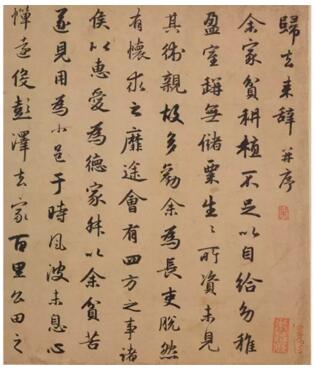 歸去来辭 并序
余家貧耕植不足以自給幼稚
盈室缾無儲粟生生所資未見
其術親故多勸余為長吏脫然
有懷求之靡途會有四方之事諸
侯以惠愛為德家叔以余貧苦
遂見用為小邑于時風波未息心
憚遠役彭澤去家百里公田之